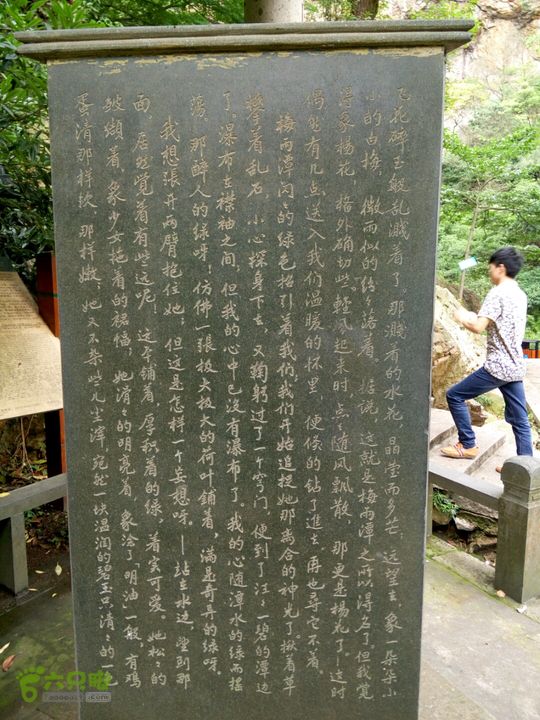 飞花碎玉般乱溅着了。那溅着的水花，晶莹而多芒；远望去，象一朵朵小
小的白梅，微雨似的纷々落着。据说，这就是梅雨潭之所以得名了。但我觉
得象杨花，格外确切些。轻风起来时，点々随风飘散，那更是杨花了——这时
偶然有几点送入我们温暖的怀里，便倏的钻了进去，再也寻它不着
梅雨潭闪々的绿色招引着我们；我们开始追捉她那离合的神光了。揪着草
攀着乱石，小心探身下去，又鞠躬过了一个穹门，便到了汪々一碧的潭边
了。瀑布在襟袖之间，但我的心中已没有瀑布了。我的心随潭水的绿而摇
荡，那醉人的绿呀！仿佛一张极大极大的荷叶铺着，满是奇异的绿呀。
我想张开两臂抱住她；但这是怎样一个妄想呀。——站在水边，望到那
面，居然觉着有些远呢，这平铺着，厚积着的绿，着实可爱。她松々的
皱缬着，象少女拖着的裙幅，她滑々的明亮着，象涂了"明油"一般，有鸡
蛋清那样软，那样嫩；她又不杂些儿尘滓，宛然一块温润的碧玉，只清々的一色
六只脚